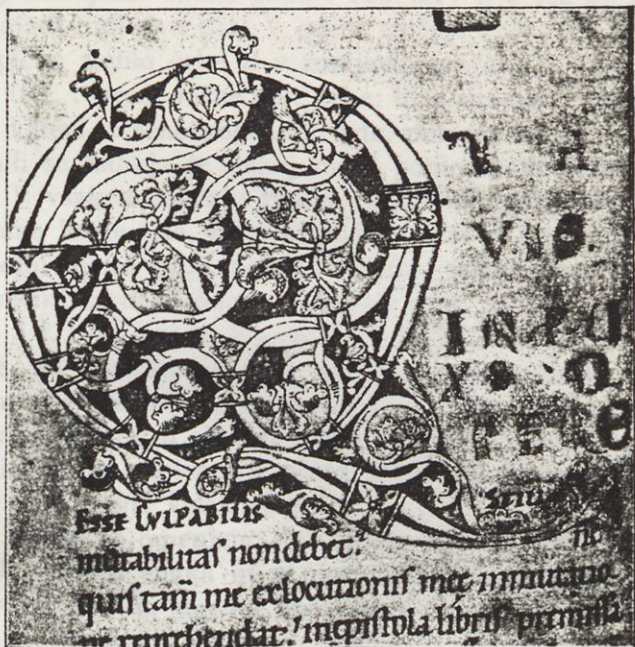 VIS.
INFLU
XO · O
PERE
STILI
ESSE CULPABILIS
mutabilitas non debet. ne
quis tam̄ me ex locutionis mee immutatio
ne reprehendat, in epistola libris premissa